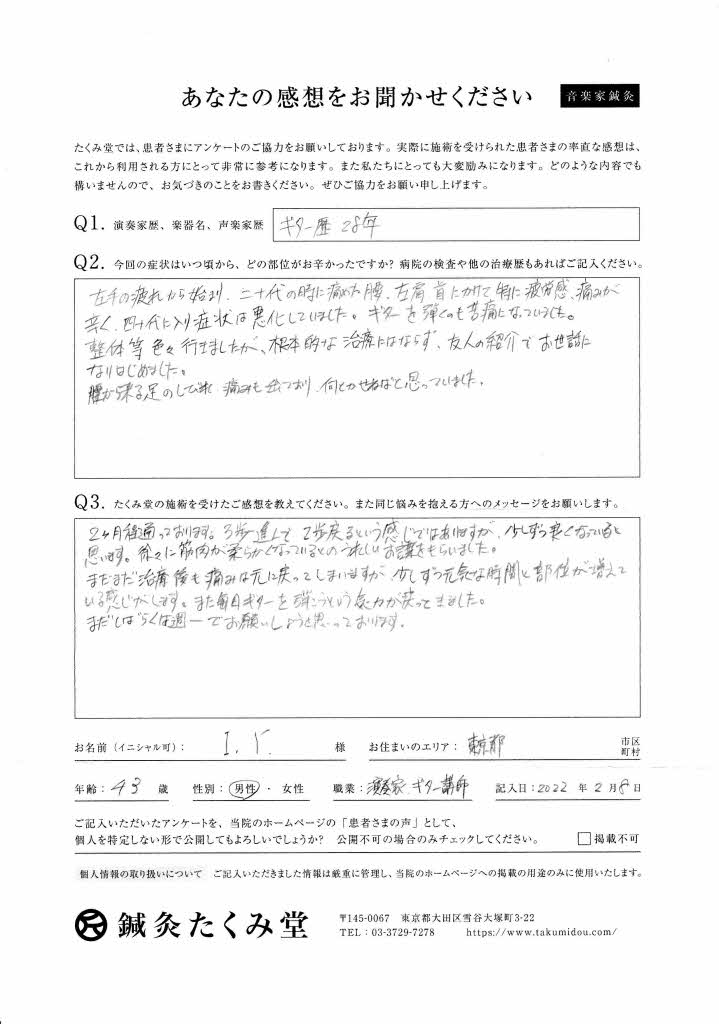 あなたの感想をお聞かせください
音楽家鍼灸
たくみ堂では、患者さまにアンケートのご協力をお願いしております。実際に施術を受けられた患者さまの率直な感想は、
これから利用される方にとって非常に参考になります。また私たちにとっても大変励みになります。どのような内容でも
構いませんので、お気づきのことをお書きください。ぜひご協力をお願い申し上げます。
Q1. 演奏家歴、楽器名、声楽家歴
ギター歴 28年
Q2. 今回の症状はいつ頃から、どの部位がお辛かったですか？病院の検査や他の治療歴もあればご記入ください。
左手の疲れから始まり、二十代の時に痛めた腰、左肩首にかけて特に疲労感、痛みが
辛く、四十代に入り症状は悪化していました。ギターを弾くのも苦痛になっていました。
整体等色々行きましたが、根本的な治療にはならず、友人の紹介でお世話に
なりはじめました。
腰から来る足のしびれ、痛みも出ており、何とかせねばと思っていました。
Q3. たくみ堂の施術を受けたご感想を教えてください。また同じ悩みを抱える方へのメッセージをお願いします。
2ヶ月程通っております。3歩進んで2歩戻るという感じではありますが、少しずつ良くなっていると
思います。徐々に筋肉が柔らかくなっているとのうれしいお言葉をもらいました。
まだまだ治療後も痛みは元に戻ってしまいますが、少しずつ元気な時間と部位が増えて
いる感じがします。また毎日ギターを弾こうという気力が戻ってきました。
まだしばらくは週一でお願いしようと思っております。
お名前（イニシャル可）： I. Y. 様 お住まいのエリア： 東京都 市区町村
年齢： 43 歳 性別： 男性 ・ 女性 職業： 演奏家、ギター講師 記入日：2022 年 2 月 8 日
ご記入いただいたアンケートを、当院のホームページの「患者さまの声」として、
個人を特定しない形で公開してもよろしいでしょうか？ 公開不可の場合のみチェックしてください。 □掲載不可
個人情報の取り扱いについて ご記入いただきました情報は厳重に管理し、当院のホームページへの掲載の用途のみに使用いたします。
鍼灸たくみ堂
〒145-0067 東京都大田区雪谷大塚町3-22
TEL：03-3729-7278 https://www.takumidou.com/